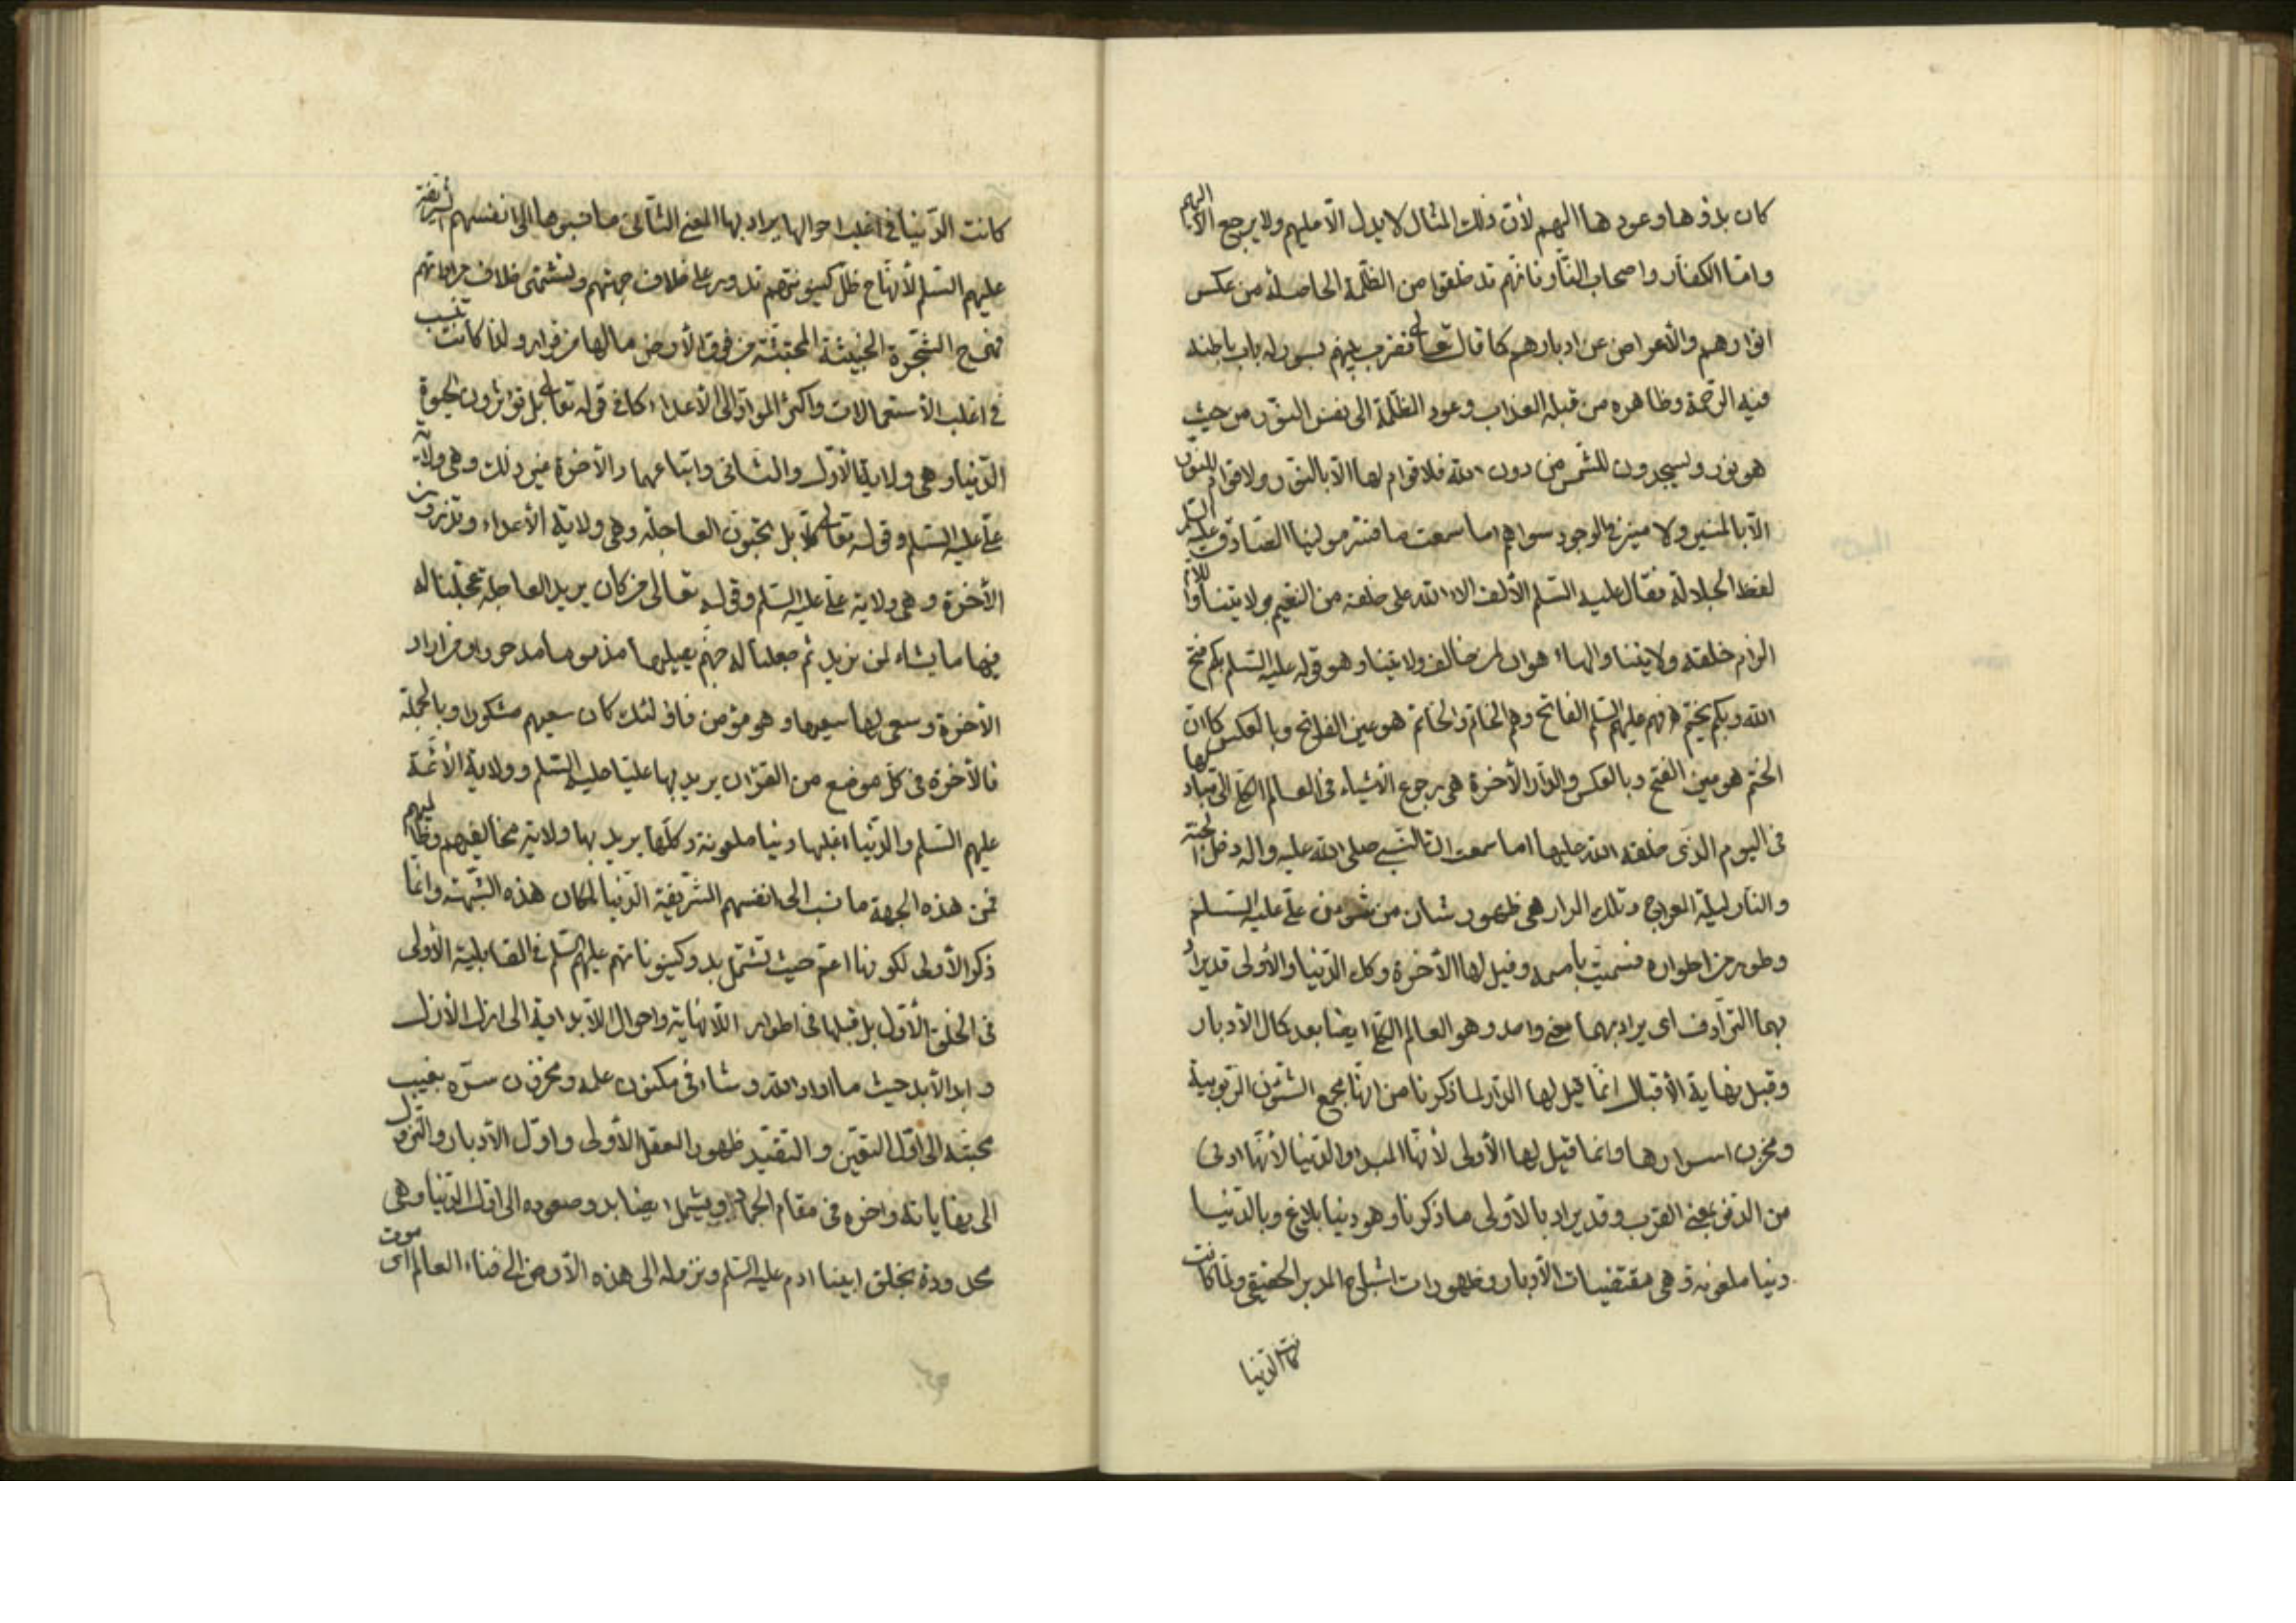 كان بدؤها وعودها اليهم لأن ذلك المثال لا يدل الّا عليهم ولا يرجع الّا اليهم
وامّا الكفّار واصحاب النّار فانّهم قد خلقوا من الظّلمة الحاصلة من عكس
انوارهم والأعراض عن ادبارهم كما قال تعالى فضرب بينهم بسور له باب باطنه
فيه الرّحمة وظاهره من قبله العذاب وعود الظّلمة الى نفس النّور من حيث
هو نور ويسجدون للشّمس من دون الله فلا قوام لها الّا بالنّور ولا قوام للنّور
الّا بالمنير ولا منير في الوجود سواهم اما سمعت ما فسّر مولينا الصّادق عليه السّلم
لفظ الجلالة فقال عليه السّلم الألف الاء الله على خلقه من النّعيم بولايتنا واللّام
الزام خلقه ولايتنا والهاء هوان لمن خالف ولايتنا وهو قوله عليه السّلم بكم فتح
الله وبكم يختم فهم عليهم السّلم الفاتح وهم الخاتم والخاتم هو عين الفاتح وبالعكس كما انّ
الختم هو عين الفتح وبالعكس والدّار الأخرة هي رجوع الأشياء في العالم الى مباديها
في اليوم الّذى خلقه الله عليها اما سمعت انّ النّبي صلى الله عليه واله دخل الجنّة
والنّار ليلة المعراج وتلك الدار هي ظهور شان من شؤن علّي عليه السّلم
وطور من اطواره فسميّت باسمه وقيل لها الأخرة وكك الدّنيا والأولى قد يراد
بهما التّرادف اى يراد بهما معنى واحد وهو العالم ايضا بعد كمال الأدبار
وقبل نهاية الأقبال انّما قيل لها الدّار لما ذكرنا من انّها مجمع الشّئون الرّبوبية
ومخزن اسرارها وانما قيل لها الأولى لأنّها المبدء والدّنيا لأنّها ادنى
من الدنّو بمعنى القرب وقد يراد بالأولى ما ذكرنا وهو دنيا بلاغ وبالدّنيا
دنيا ملعونة وهي مقتضيات الأدبار وظهورات المدبر الحقيقي ولمّا كانت
كانت الدّنيا
كانت الدّنيا في اغلب احوالها يراد بها المعنى الثّانى ما نسبوها الى انفسهم الشّريفة
عليهم السّلم لأنّها ح ظلّ كينونتهم تدور على خلاف جهتهم وتشتهى خلاف
فهى ح الشّجرة الخبيثة المجتثّة من فوق الأرض ما لها من قرار ولذا كانت تنسب
في اغلب الأستعمالات واكثر الموارد الى الأعداء كما في قوله تعالى بل تؤثرون الحيوة
الدّنيا وهي ولاية الأوّل والثّانى واتباعهما والأخرة خير وهي ولاية
علّي عليه السّلم وقوله تعالى كلّا بل تحبّون العاجلة وهي ولاية الأعداء وتذرون
الأخرة وهي ولاية علّي عليه السّلم وقوله تعالى من كان يريد العاجلة عجّلنا له
فيها ما يشاء لمن نريد ثم جعلنا له جهنّم يصليها مذموما مدحورا ومن اراد
الأخرة وسعى لها سعيها وهو مؤمن فاولئك كان سعيهم مشكورا وبالجملة
فالأخرة في كلّ موضع من القران يريد بها عليّا عليه السّلم وولاية الأئمّة
عليهم السّلم والدّنيا اغلبها دنيا ملعونة وكلّها يريد بها ولاية مخالفيهم وظالميهم
فمن هذه الجهة ما نسب الى انفسهم الشّريفة الدّنيا لمكان هذه الشّبهة وانّما
ذكر الأولى لكونها اعمّ حيث تشتمل بدو كينوناتهم عليهم السّلم في القابلية الأولى
في الخلق الأوّل بل قبلها في اطوار اللّانهاية واحوال اللّابداية الى ازل الأزل
وابد الأبد حيث ما اراد الله وشاء في مكنون علمه ومخزون سرّه بغيب
محبّته الى اوّل التّعيّن والتّقيّد ظهور العقل الأولى واوّل الأدبار والنّزول
الى نهاياته واخره في مقام الجماد ويشمل ايضا بدو صعوده الى اوّل الدّنيا وهي
محدودة بخلق ابينا ادم عليه السّلم ونزوله الى هذه الأرض الى فناء العالم اى موت